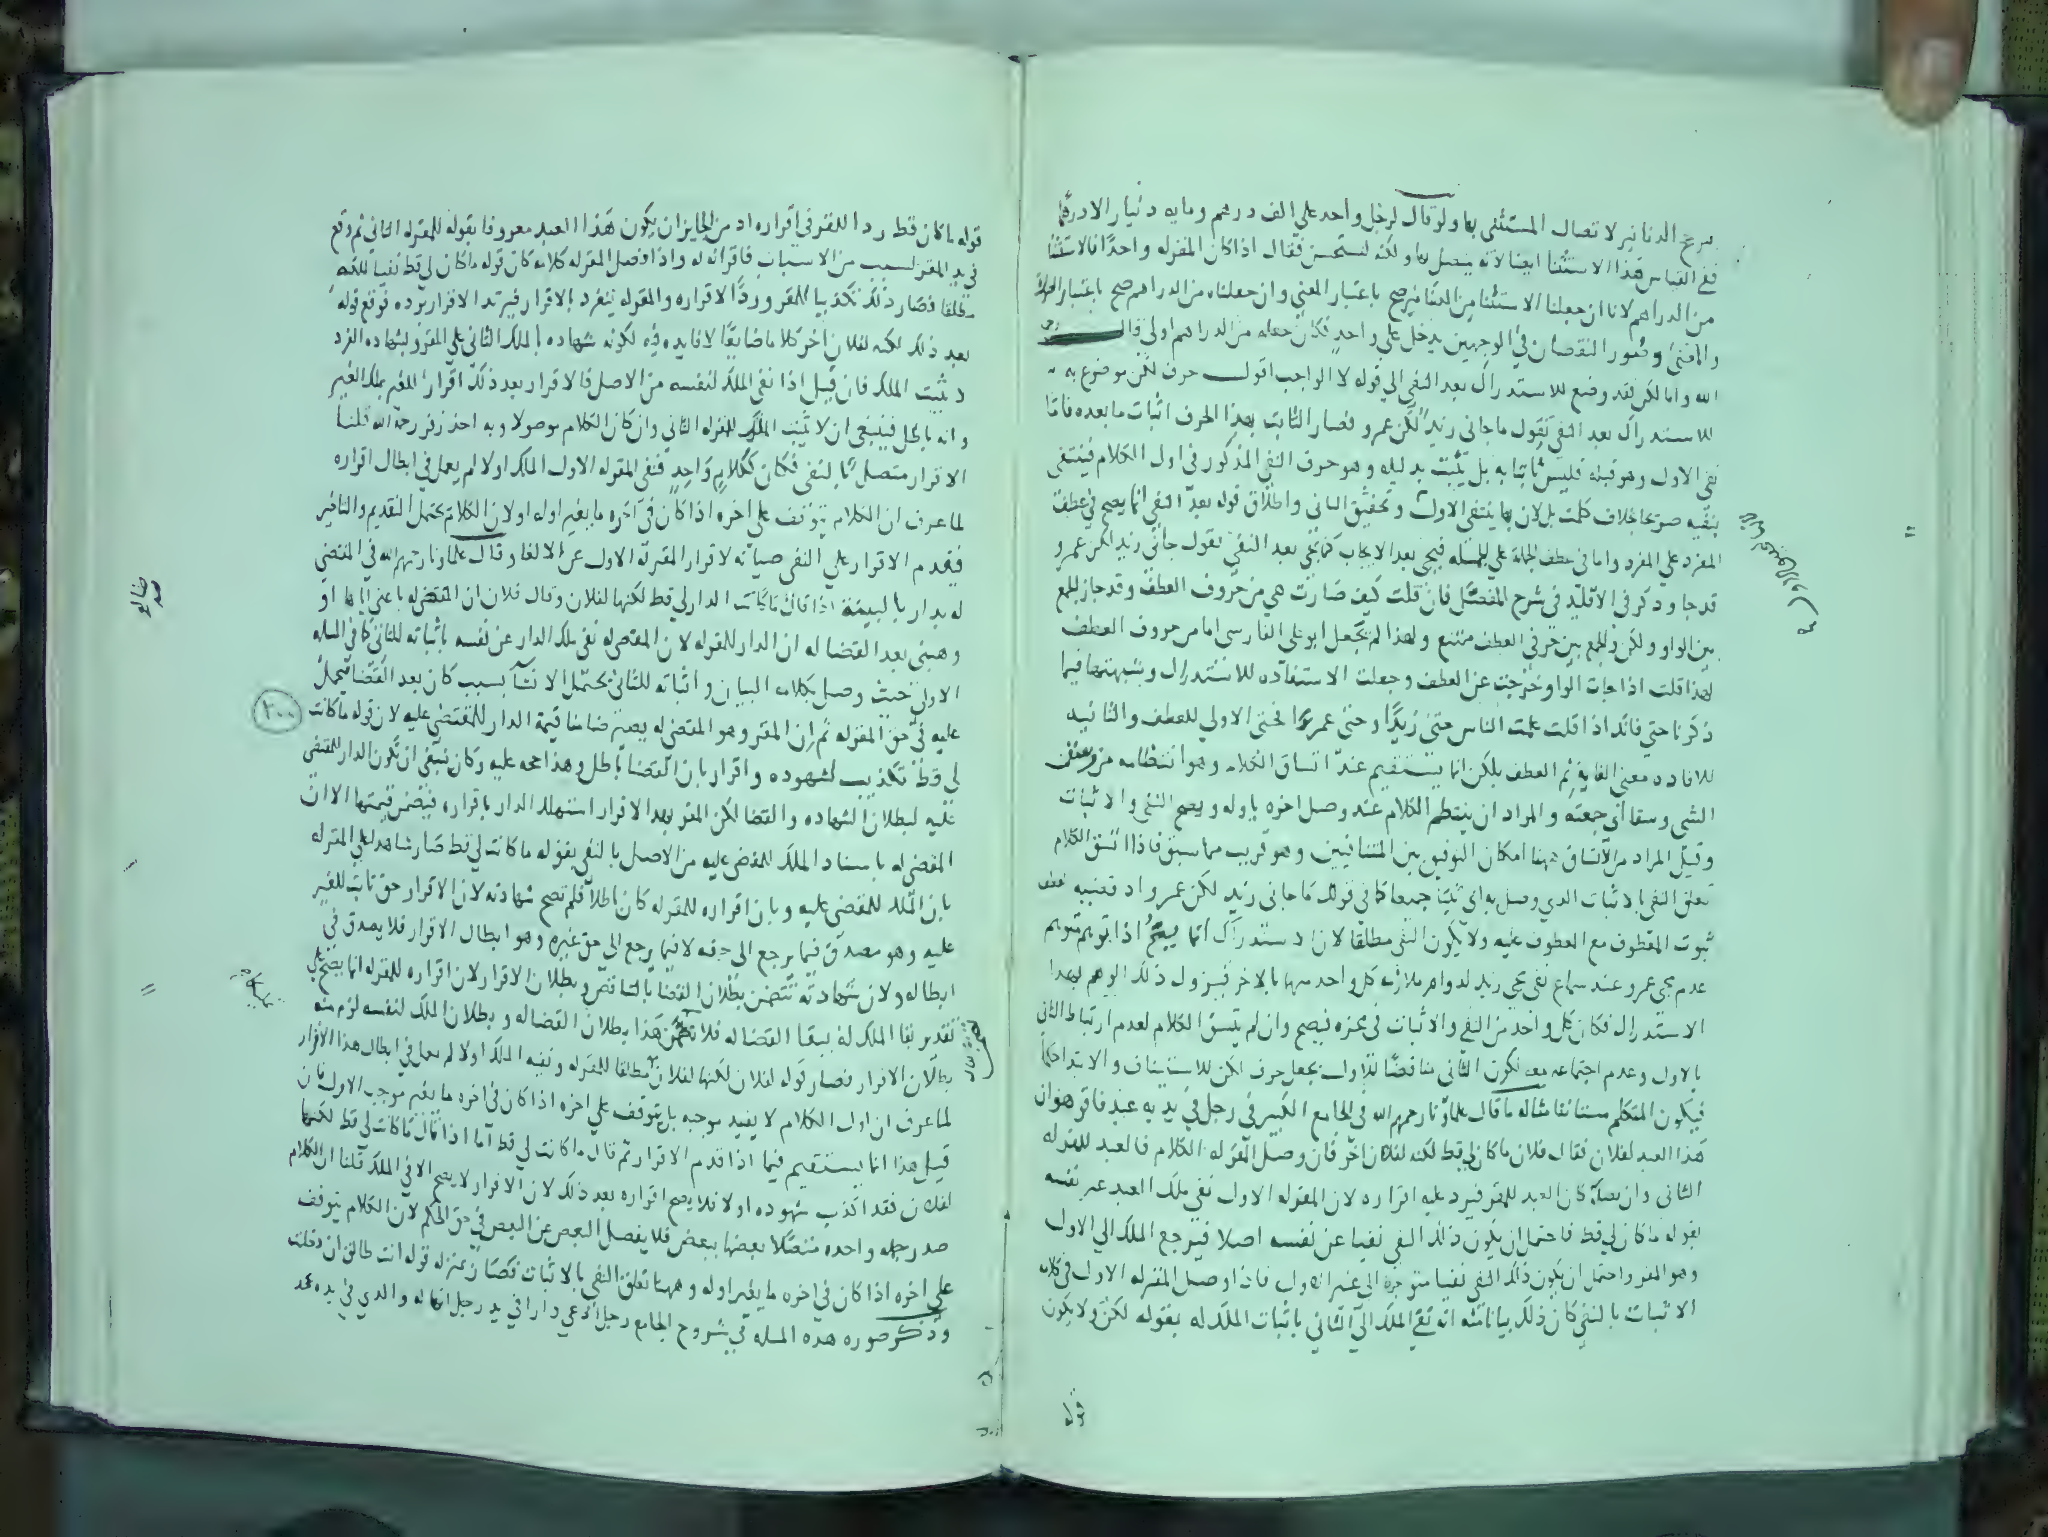 من الدنانير لاتصال المستثنى بها ولو قال لرجل واحد على الف درهم ومايه دينار الا درهما
ففي القياس هذا الاستثنا ايضا لانه يتصل بها ولكنه استحسن فقال اذا كان المقرله واحدا فالاستثنا
من الدراهم لانا ان جعلنا الاستثنا من الدنانير صح باعتبار المعني وان جعلناه من الدراهم صح باعتبار
والمعني وضرر النقصان في الوجهين يدخل على واحد فكان جعله من الدراهم اولى قال
الله واما لكن فقد وضع للاستدراك بعد النفي الى قوله لا الواجب اقول حرف لكن موضوع به
للاستدراك بعد النفي تقول ما جاني زيد لكن عمرو فصار الثابت بهذا الحرف اثبات ما بعده فاما
نفى الاول وهو قبله فليس ثابتا به بل يثبت بدليله وهو حرف النفي المذكور في اول الكلام فينتفى
بنفيه صريحا بخلاف كلمت بل لان بها ينتفي الاول وتحقيق الثاني واطلاق قوله بعد النفي انما يصح في عطف
المفرد على المفرد واما في عطف الجملة على الجمله فيجي بعد الايجاب كما يجي بعد النفي تقول جاني زيد لكن عمرو
قد جا وذكر في الاقليد في شرح المفصل فان قلت كيف صارت هي من حروف العطف وقد جاز الجمع
بين الواو ولكن والجمع بين حرفي العطف ممتنع ولهذا لم يجعل ابو على الفارسى اما من حروف العطف
لهذا قلت اذا جات الواو خرجت عن العطف وجعلت الاستفاده للاستدراك وشبهتها فيما
ذكرنا حتى فانك اذا قلت علمت الناس حتى زيدا وحتى عمروا فحتى الاولي للعطف والثانيه
للافاده معني الغايه ثم العطف بلكن انما يستقيم عند اتساق الكلام وهو انتظامه من وسق
الشي وسقا اي جمعته والمراد ان ينتظم الكلام عند وصل اخره باوله ويصح النفى والاثبات
وقيل المراد من الاتساق ههنا امكان التوفيق بين المتنافيين وهو قريب مما سبق فاذا اتسق الكلام
تعلق النفي بالاثبات الذي وصل به اى يثبتا جميعا كما في قولك ما جاني زيد لكن عمرو اذ قضيه العطف
ثبوت المعطوف مع المعطوف عليه ولا يكون النفى مطلقا لان الاستدراك انما يصح اذا توهم متوهم
عدم مجي عمرو عند سماع نفى مجي زيد لدوام ملازمه كل واحد منهما بالاخر فيزول ذلك الوهم بهذا
الاستدراك فكان كل واحد من النفى والاثبات في محزه فيصح وان لم يتسق الكلام لعدم ارتباط الثانى
بالاول وعدم اجتماعه معه لكون الثاني مناقضا للاول يجعل حرف لكن للاستيناف والابتدا حكما
فيكون المتكلم مستانفا مثاله ما قال علماونا رحمهم الله في الجامع الكبير في رجل في يديه عبد فاقر هو ان
هذا العبد لفلان فقال فلان ما كان لي قط لكنه لفلان اخر فان وصل المقرله الكلام فالعبد للمقرله
الثانى وان فصله كان العبد للمقر فيرد عليه اقراره لان المقرله الاول نفى ملك العبد عن نفسه
بقوله ما كان لي قط فاحتمل ان يكون ذلك النفي نفيا عن نفسه اصلا فيرجع الملك الى الاول
وهو المقر واحتمل ان يكون ذلك النفى نفيا متوجها الى غير الاول فاذا وصل المقرله الاول في كلامه
الاثبات بالنفي كان ذلك بيانا منه انه نفى الملك الى الثاني باثبات الملك له بقوله لكن ولا يكون
قوله
قوله ما كان قط ردا للمقر في اقراره اذ من الجايز ان يكون هذا العبد معروفا بقوله للمقرله الثاني ثم وقع
في يد المقر لسبب من الاسباب فاقر انه له واذا فصل المقرله كلامه كان قوله ما كان لي قط نفيا للملك
مطلقا فصار ذلك تكذيبا للمقر وردا لاقراره والمقرله ينفرد بالاقرار فيرتد الاقرار برده فوقع قوله
بعد ذلك لكنه لفلان اخر كلاما ضايعا لا فايده فيه لكونه شهاده بالملك الثاني علي المقر وبشهاده الفرد
لا يثبت الملك فان قيل اذا نفى الملك لنفسه من الاصل فالاقرار بعد ذلك اقرار للغير بملك الغير
وانه باطل فينبغي ان لا يثبت الملك للمقرله الثاني وان كان الكلام موصولا وبه اخذ زفر رحمه الله قلنا
الاقرار متصل بالنفى فكان ككلام واحد فنفى المقرله الاول الملك اولا لم يعمل في ابطال اقراره
لما عرف ان الكلام يتوقف على اخره اذا كان في اخره ما يغير اوله او لان الكلام يحتمل التقديم والتاخير
فيقدم الاقرار علي النفى صيانه لاقرار المقرله الاول عن الالغا وقال علماونا رحمهم الله في المقضي
له بدار بالبينة اذا قال ما كانت الدار لي قط لكنها لفلان وقال فلان ان المقضى له باعني اياها او
وهبني بعد القضا له ان الدار للمقرله لان المقضى له نفى ملك الدار عن نفسه باثباته للثاني كما في المسله
الاولي حيث وصل بكلامه البيان واثباته للثاني يحتمل الانشا بسبب كان بعد القضا فيحمل
عليه في حق المقرله ثم ان المقر وهو المقضي له يصير ضامنا قيمة الدار للمقتضى عليه لان قوله ما كانت
لي قط تكذيب لشهوده واقرار بان القضا باطل وهذا حجه عليه وكان ينبغي ان تكون الدار للمقضى
عليه لبطلان الشهاده والقضا لكن المقر بهذا الاقرار استهلك الدار باقراره فيضمن قيمتها الا ان
المقضى له باسناد الملك للمقضي عليه من الاصل بالنفي بقوله ما كانت لي قط صار شاهدا علي المقرله
بان الملك للمقضى عليه وبان اقراره للمقرله كان باطلا فلم تصح شهادته لان الاقرار حق ثابت للغير
عليه وهو مصدق فيما يرجع الى حقه لا فيما يرجع الى حق غيره وهو ابطال الاقرار فلا يصدق في
ابطاله ولان شهادته تتضمن بطلان القضا بالتناقض وبطلان الاقرار لان اقراره للمقرله انما يصح علي
تقدير بقا الملك له ببقا القضا له فلا تضمن هذا بطلان القضا له وبطلان الملك لنفسه لزم منه
بطلان الاقرار فصار قوله لفلان لكنها لفلان مطلقا للمقرله ونفيه الملك اولا لم يعمل في ابطال هذا الاقرار
لما عرف ان اول الكلام لا يفيد موجبه بل يتوقف علي اخره اذا كان في اخره ما يغير موجب الاول فان
قيل هذا انما يستقيم فيما اذا قدم الاقرار ثم قال ما كانت لي قط اما اذا قال ما كانت لي قط لكنها
لفلان فقد اكذب شهوده اولا فلا يصح اقراره بعد ذلك لان الاقرار لا يصح الا في الملك قلنا ان الكلام
صدر جمله واحده متصلا بعضها ببعض فلا يفصل البعض عن البعض في حق الحكم لان الكلام يتوقف
على اخره اذا كان في اخره ما يغير اوله وههنا تعلق النفي بالاثبات فكان بمنزله قوله انت طالق ان دخلت
وذكر صوره هذه المسله في شروح الجامع رجل ادعي دارا في يد رجل انها له والذي في يده يجحد
٢٠٠